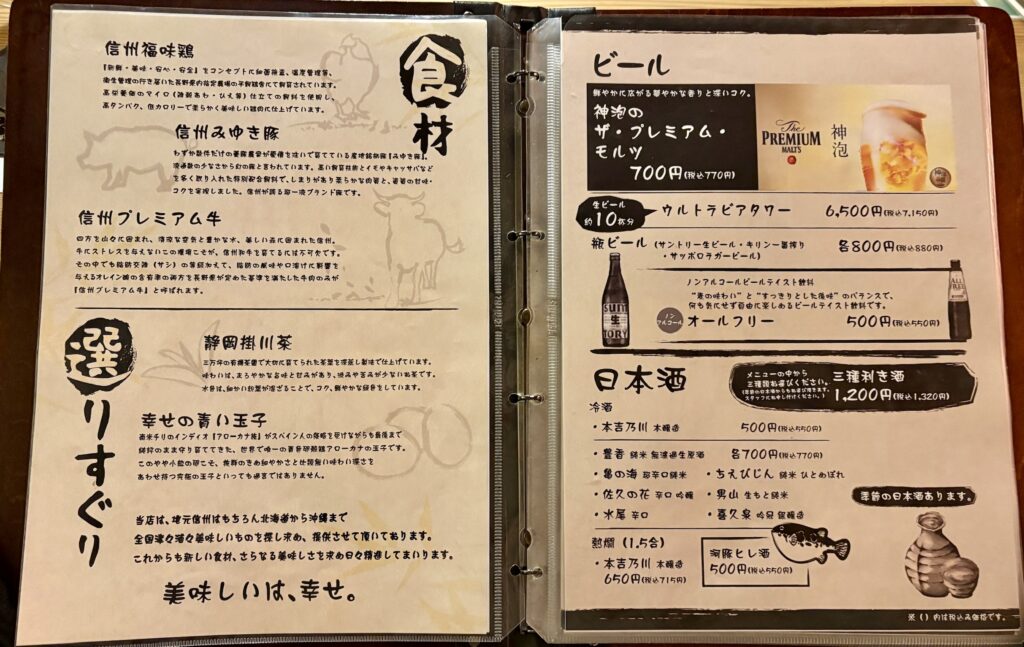 食材
信州福味鶏
『新鮮・美味・安心・安全』をコンセプトに細菌検査、温度管理等、
衛生管理の行き届いた長野県内指定農場の平飼鶏舎にて飼育されています。
高栄養価のマイロ（雑穀あわ・ひえ等）仕立ての飼料を使用し、
高タンパク、低カロリーで柔らかく美味しい鶏肉に仕上げています。
信州みゆき豚
わずか数件だけの養豚農家が愛情を注いで育てている産地銘柄豚『みゆき豚』。
流通数の少なさから幻の豚と言われています。高い飼育技術とイモやキャッサバなど
を多く取り入れた特別配合飼料で、しまりがあり柔らかな肉質と、最高の甘味・
コクを実現しました。信州が誇る超一流ブランド豚です。
信州プレミアム牛
四方を山々に囲まれ、清涼な空気と豊かな水、美しい森に囲まれた信州。
牛にストレスを与えないこの環境こそが、信州和牛を育てるには不可欠です。
その中でも脂肪交雑（サシ）の等級加えて、脂肪の風味や口溶けに影響を
与えるオレイン酸の含有率の両方を長野県が定めた基準を満たした牛肉のみが
『信州プレミアム牛』と呼ばれます。
選りすぐり
静岡掛川茶
三万坪の有機茶園で大切に育てられた茶葉を深蒸し製法で仕上げています。
味わいは、まろやかな旨味と甘みがあり、渋みや苦みが少ないお茶です。
水色は、細かい粉葉が混ざることで、コク、鮮やかな緑色をしています。
幸せの青い玉子
南米チリのインディオ『アローカナ族』がスペイン人の侵略を受けながらも最後まで
純粋のまま守り育ててきた、世界で唯一の青音卵殻鶏アローカナの玉子です。
このやや小粒の卵こそ、抜群のきめ細やかさと仕類無い味わい深さを
あわせ持つ究極の玉子といっても過言ではありません。
当店は、地元信州はもちろん北海道から沖縄まで
全国津々浦々美味しいものを探し求め、提供させて頂いております。
これからも新しい食材、さらなる美味しさを求め日々精進してまいります。
美味しいは、幸せ。
ビール
鮮やかに広がる華やかな香りと深いコク。
神泡の
ザ・プレミアム・
モルツ
700円(税込770円)
The PREMIUM MALT'S
神泡
生ビール
約10杯分
ウルトラビアタワー 6,500円(税込7,150円)
瓶ビール (サントリー生ビール・キリン一番搾り
・サッポロラガービール) 各800円(税込880円)
ノンアルコールビールテイスト飲料
"麦の味わい"と"すっきりとした後味"のバランスで、
何も気にせず自由に楽しめるビールテイスト飲料です。
ノンアルコール オールフリー 500円(税込550円)
SUNTORY 生
ALL FREE
日本酒
メニューの中から
三種類お選びください。
(季節の日本酒からもお選び頂けます。
スタッフにお申し付けください。)
三種利き酒
1,200円(税込1,320円)
冷酒
・本吉乃川 本醸造 500円(税込550円)
・豊香 純米 無濾過生原酒 各700円(税込770円)
・亀の海 超辛口純米 ・ちえびじん 純米 ひとめぼれ
・佐久の花 辛口 吟醸 ・男山 生もと純米
・水尾 辛口 ・喜久泉 吟冠 吟醸造
季節の日本酒あります。
熱燗 (1.5合)
・本吉乃川 本醸造
650円(税込715円)
河豚ヒレ酒
500円(税込550円)
※ ( ) 内は税込み価格です。